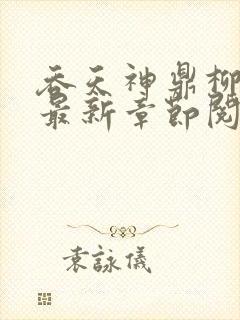 吞天神鼎柳
最新章節閱
袁詠儀